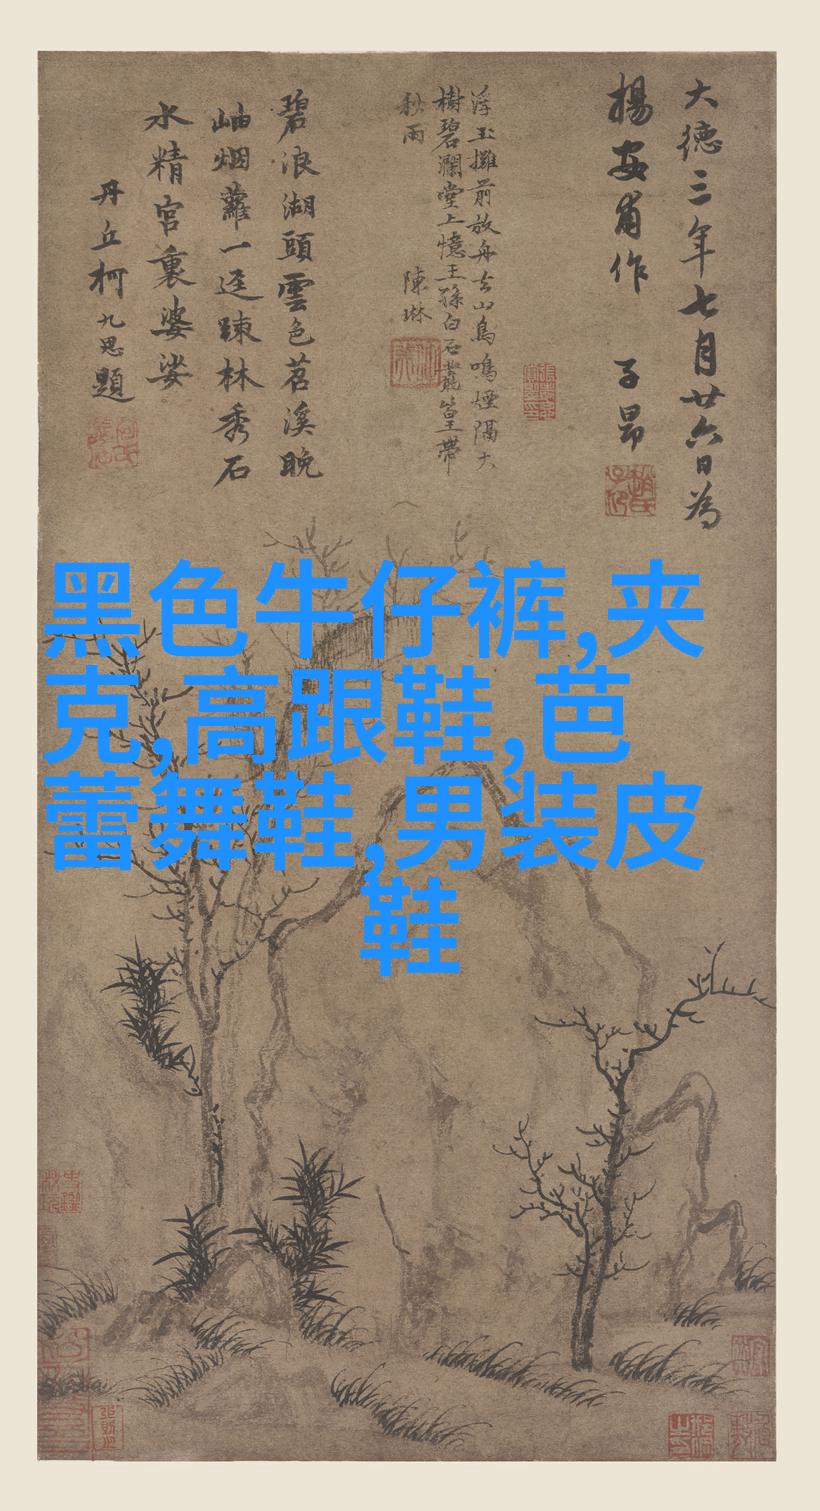 大德三年七月廿六日為
楊安甫作
子昂
浮玉攤前放舟去山鳥鳴煙隔大
樹碧瀾堂上憶王孫白石叢篁帶
秋雨
陳琳
碧浪湖頭雲色苕溪晚
岫烟蘿一迳踈林秀石
水精宮裏婆娑
丹丘柯九思題
黑色牛仔裤,夹
克,高跟鞋,芭
蕾舞鞋,男装皮
鞋